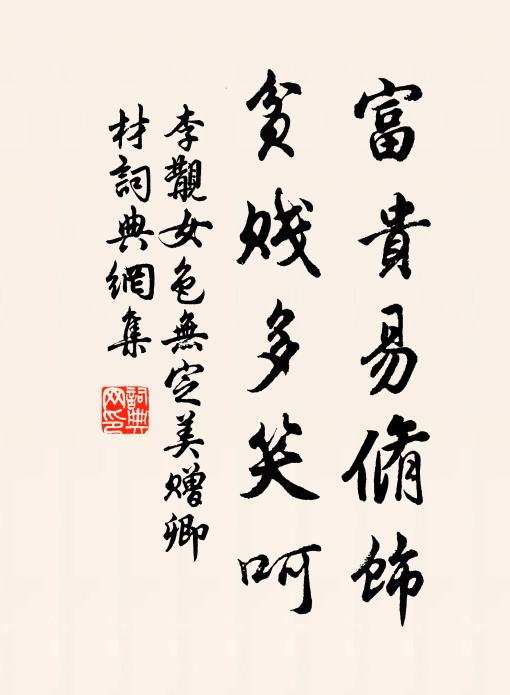 富貴易脩飾
貧賤多笑呵
李覯女色無定美贈卿
材詞典網集
詞典
网印